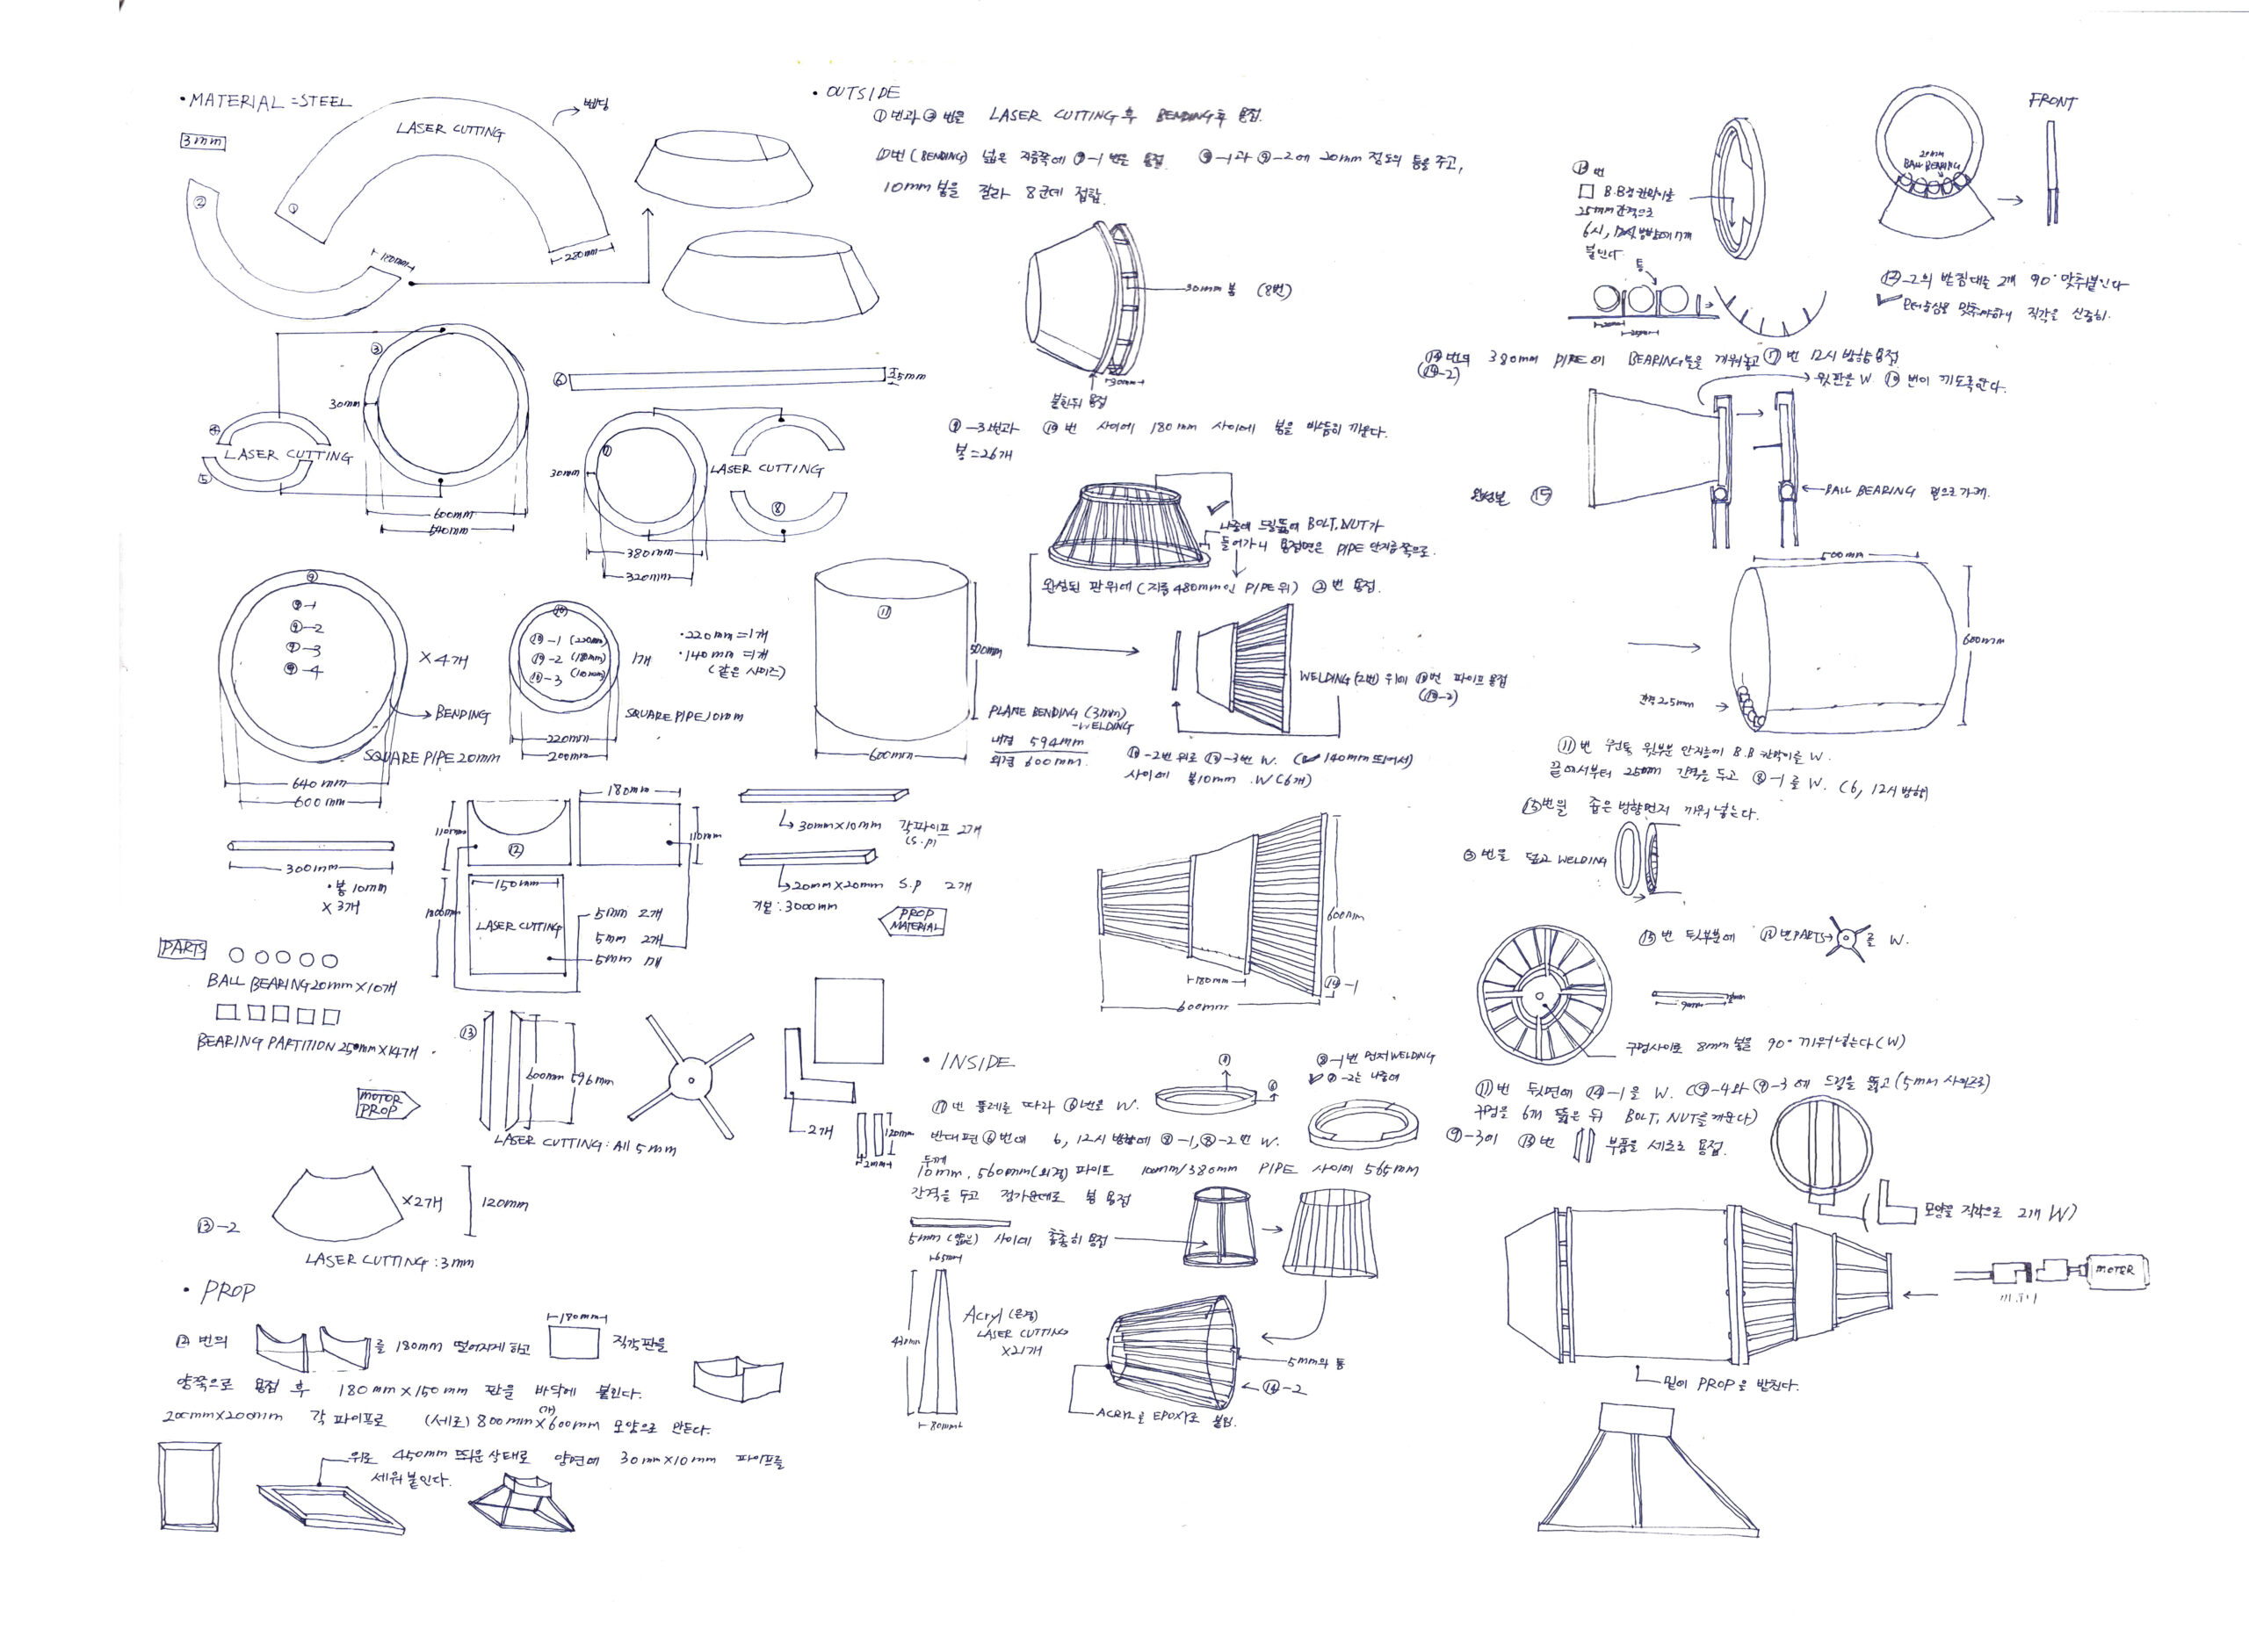 • MATERIAL = STEEL
3mm
LASER CUTTING
벤딩
①
②
180mm
280mm
③
④
⑤
30mm
LASER CUTTING
600mm
540mm
⑥
5mm
30mm
LASER CUTTING
⑧
380mm
320mm
⑨
⑨-1
⑨-2
⑨-3
⑨-4
×4개
BENDING
SQUARE PIPE 20mm
640mm
600mm
⑩
⑩-1 (220mm)
1개
• 220mm = 1개
• 140mm = 1개
(같은 사이즈)
SQUARE PIPE 10mm
220mm
200mm
⑪
500mm
600mm
PLANE BENDING (3mm)
-WELDING
내경 594mm
외경 600mm.
300mm
• 봉 10mm
× 3개
110mm
⑫
180mm
110mm
150mm
LASER CUTTING
5mm 2개
5mm 2개
5mm
30mm×10mm 각파이프 2개
(S.P)
20mm×20mm S.P 2개
기본 : 3000mm
PROP
MATERIAL
PARTS
BALL BEARING 20mm × 10개
BEARING PARTITION 25mm × 14개
MOTOR
PROP
⑬
600mm
596mm
LASER CUTTING : All 5mm
2개
120mm
2mm
⑬-2
×2개
120mm
LASER CUTTING : 3mm
• PROP
⑫ 번의
를 180mm 떨어지게 하고
180mm
직각판을
양쪽으로 용접 후 180mm×150mm 판을 바닥에 붙인다.
200mm×200mm 각 파이프로 (세로) 800mm×600mm 모양으로 만든다.
위로 450mm 띄운 상태로 양면에 30mm×10mm 파이프를
세워 붙인다.
• OUTSIDE
①번과 ②번은 LASER CUTTING 후 BENDING 후 용접.
①번 (BENDING) 넓은 지름쪽에 ⑨-1 번은 용접. ⑨-1과 ⑨-2에 20mm 정도의 틈을 주고,
10mm 봉을 잘라 8군데 접합.
30mm 봉 (8번)
30mm
붙인뒤 용접
⑨-3번과 ⑩번 사이에 180mm 사이에 봉을 비스듬히 끼운다.
봉 = 26개
나중에 드릴뚫어 BOLT, NUT가
들어가니 용접면은 PIPE 안지름쪽으로.
완성된 판 위에 (지름 480mm인 PIPE 위) ②번 용접.
WELDING (2번) 위에 ⑩번 파이프 용접
(⑩-2)
⑩-2번 위로 ⑩-3번 W. (140mm 띄어서)
사이에 봉10mm .W (6개)
600mm
180mm
⑭-1
600mm
• INSIDE
⑦번 둘레를 따라 ⑥번을 W.
⑧-1번 먼저 WELDING
⑧-2는 나중에
반대편 ⑥번에 6, 12시 방향에 ⑧-1, ⑧-2번 W.
두께
10mm, 560mm(외경) 파이프 10mm/380mm PIPE 사이에 565mm
간격을 두고 정가운데로 봉 용접
5mm (얇은) 사이에 촘촘히 용접
65mm
Acryl (은경)
LASER CUTTING
×21개
80mm
5mm의 틈
⑭-2
ACRYL을 EPOXY로 붙임.
25mm 간격으로
붙인다
틈
20mm
BALL BEARING
FRONT
⑬-2의 받침대를 2개 90° 맞추붙인다
모터중심을 맞춰야하니 직각을 신중히.
⑭번의 380mm PIPE에 BEARING들을 끼워놓고 ⑰번 12시 방향용접
(⑭-2)
윗판을 W ⑩번이 끼도록한다.
완성본 ⑮
BALL BEARING 밑으로가게.
500mm
600mm
간격 25mm
⑪번 원통 윗부분 안지름에 B.B 칸막이를 W.
끝에서부터 25mm 간격을 두고 ⑧-1을 W. (6, 12시 방향)
⑮번을 좁은 방향먼저 끼워 넣는다.
⑤번을 덮고 WELDING
⑮번 뒷부분에 ⑬번 PARTS를 W.
구멍사이로 8mm 봉을 90° 끼워넣는다 (W)
⑪번 뒷면에 ⑭-1을 W. (⑨-4와 ⑨-3에 드릴을 뚫고 (5mm 사이즈로)
구멍을 6개 뚫은 뒤 BOLT, NUT를 끼운다)
⑨-3에 ⑬번 부품을 세로로 용접.
모양을 직각으로 2개 W)
MOTER
밑에 PROP을 받친다.